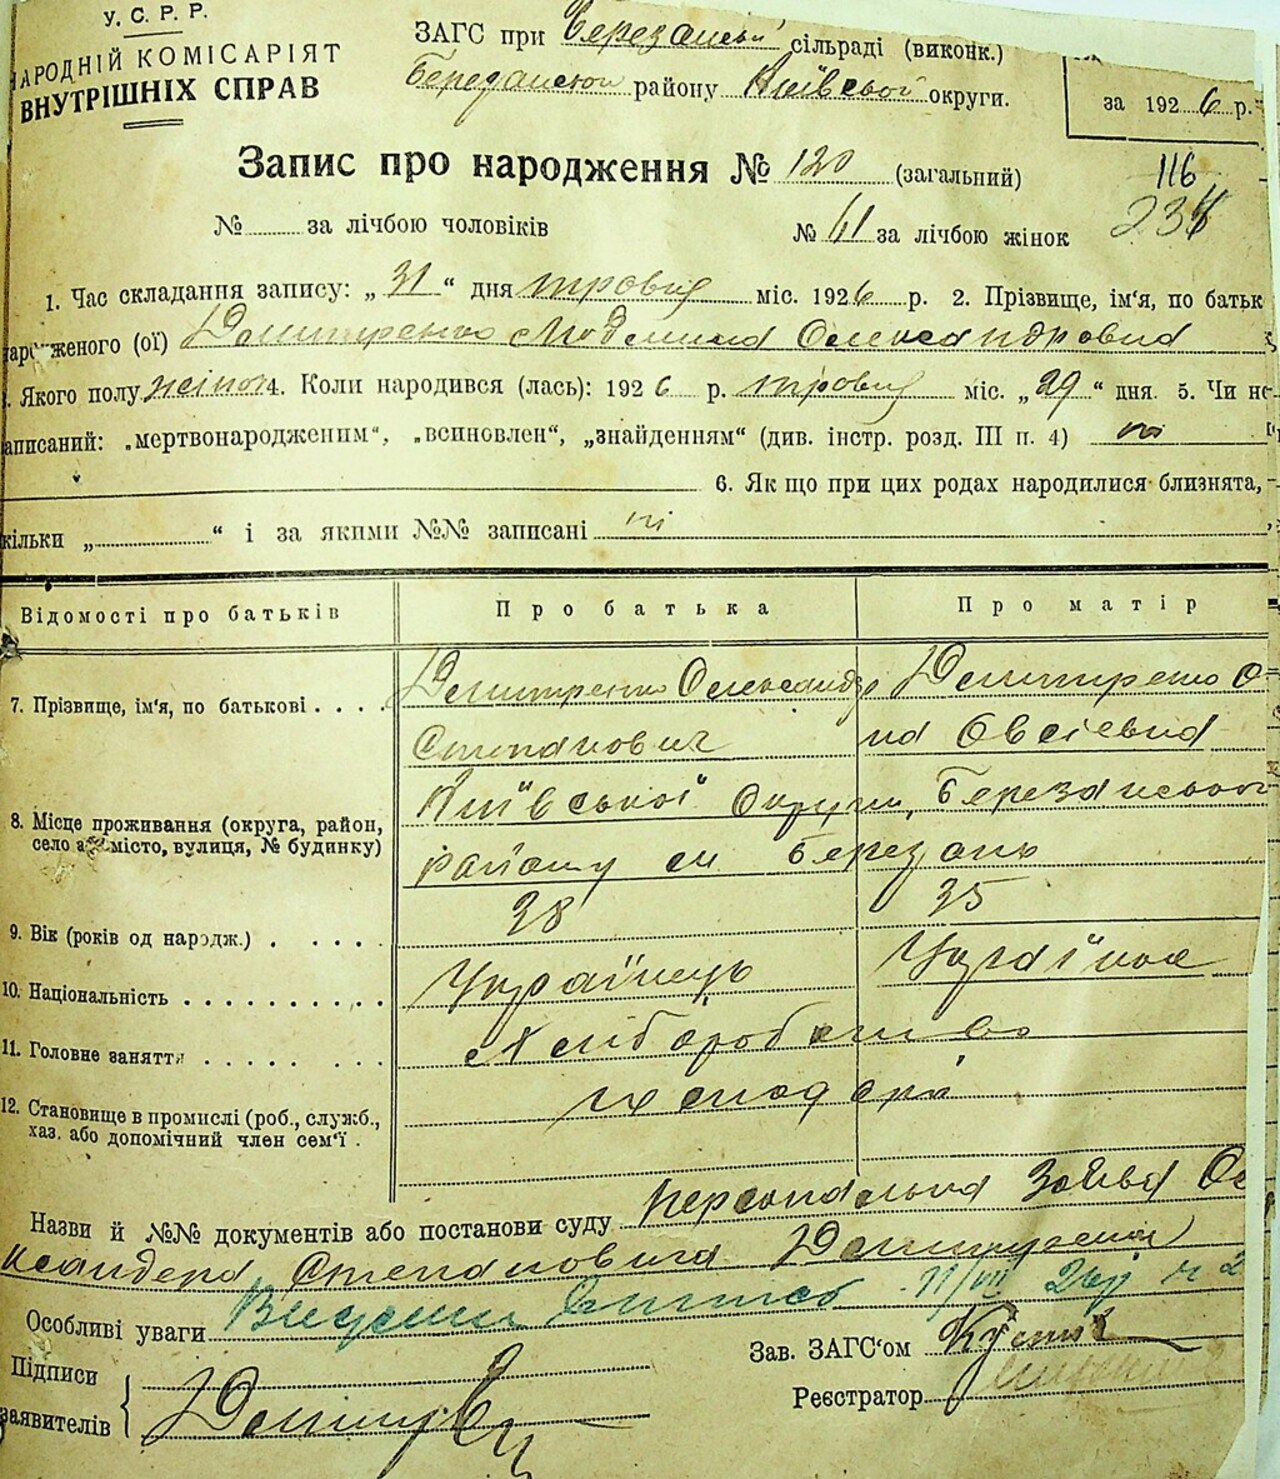 У. С. Р. Р.
НАРОДНІЙ КОМІСАРІЯТ
ВНУТРІШНІХ СПРАВ
ЗАГС при Березанській сільраді (виконк.)
Березанського району Київської округи.
за 1926 р.
Запис про народження № 120 (загальний)
116
234
№ за лічбою чоловіків № 61 за лічбою жінок
1. Час складання запису: „31“ дня травня міс. 1926 р. 2. Прізвище, ім'я, по батьк
народженого (ої) Дмитренко Людмила Олександровна
. Якого полу жіноч 4. Коли народився (лась): 1926 р. травня міс. „29“ дня. 5. Чи не
аписаний: „мертвонародженим“, „всиновлен“, „знайденням“ (див. інстр. розд. III п. 4) ні
6. Як що при цих родах народилися близнята,
кільки „ “ і за якими №№ записані ні
Відомості про батьків Про батька Про матір
7. Прізвище, ім'я, по батькові . . . . Дмитренко Олександр Дмитренко О
Степанович на Овсіевна
Київської Округи, Березанського
8. Місце проживання (округа, район,
село або місто, вулиця, № будинку)
району м. Березань
9. Вік (років од народж.) . . . . . 38 35
10. Національність . . . . . . . . . . Українець Українка
11. Головне заняття . . . . . . . . Хліборобство
12. Становище в промислі (роб., служб.,
хаз. або допомічний член сем'ї .
господарі
Назви й №№ документів або постанови суду персональна заява Ол
ксандера Степановича Дмитренка
Особливі уваги 11/VII
Зав. ЗАГС'ом
Підписи
заявителів
Реєстратор